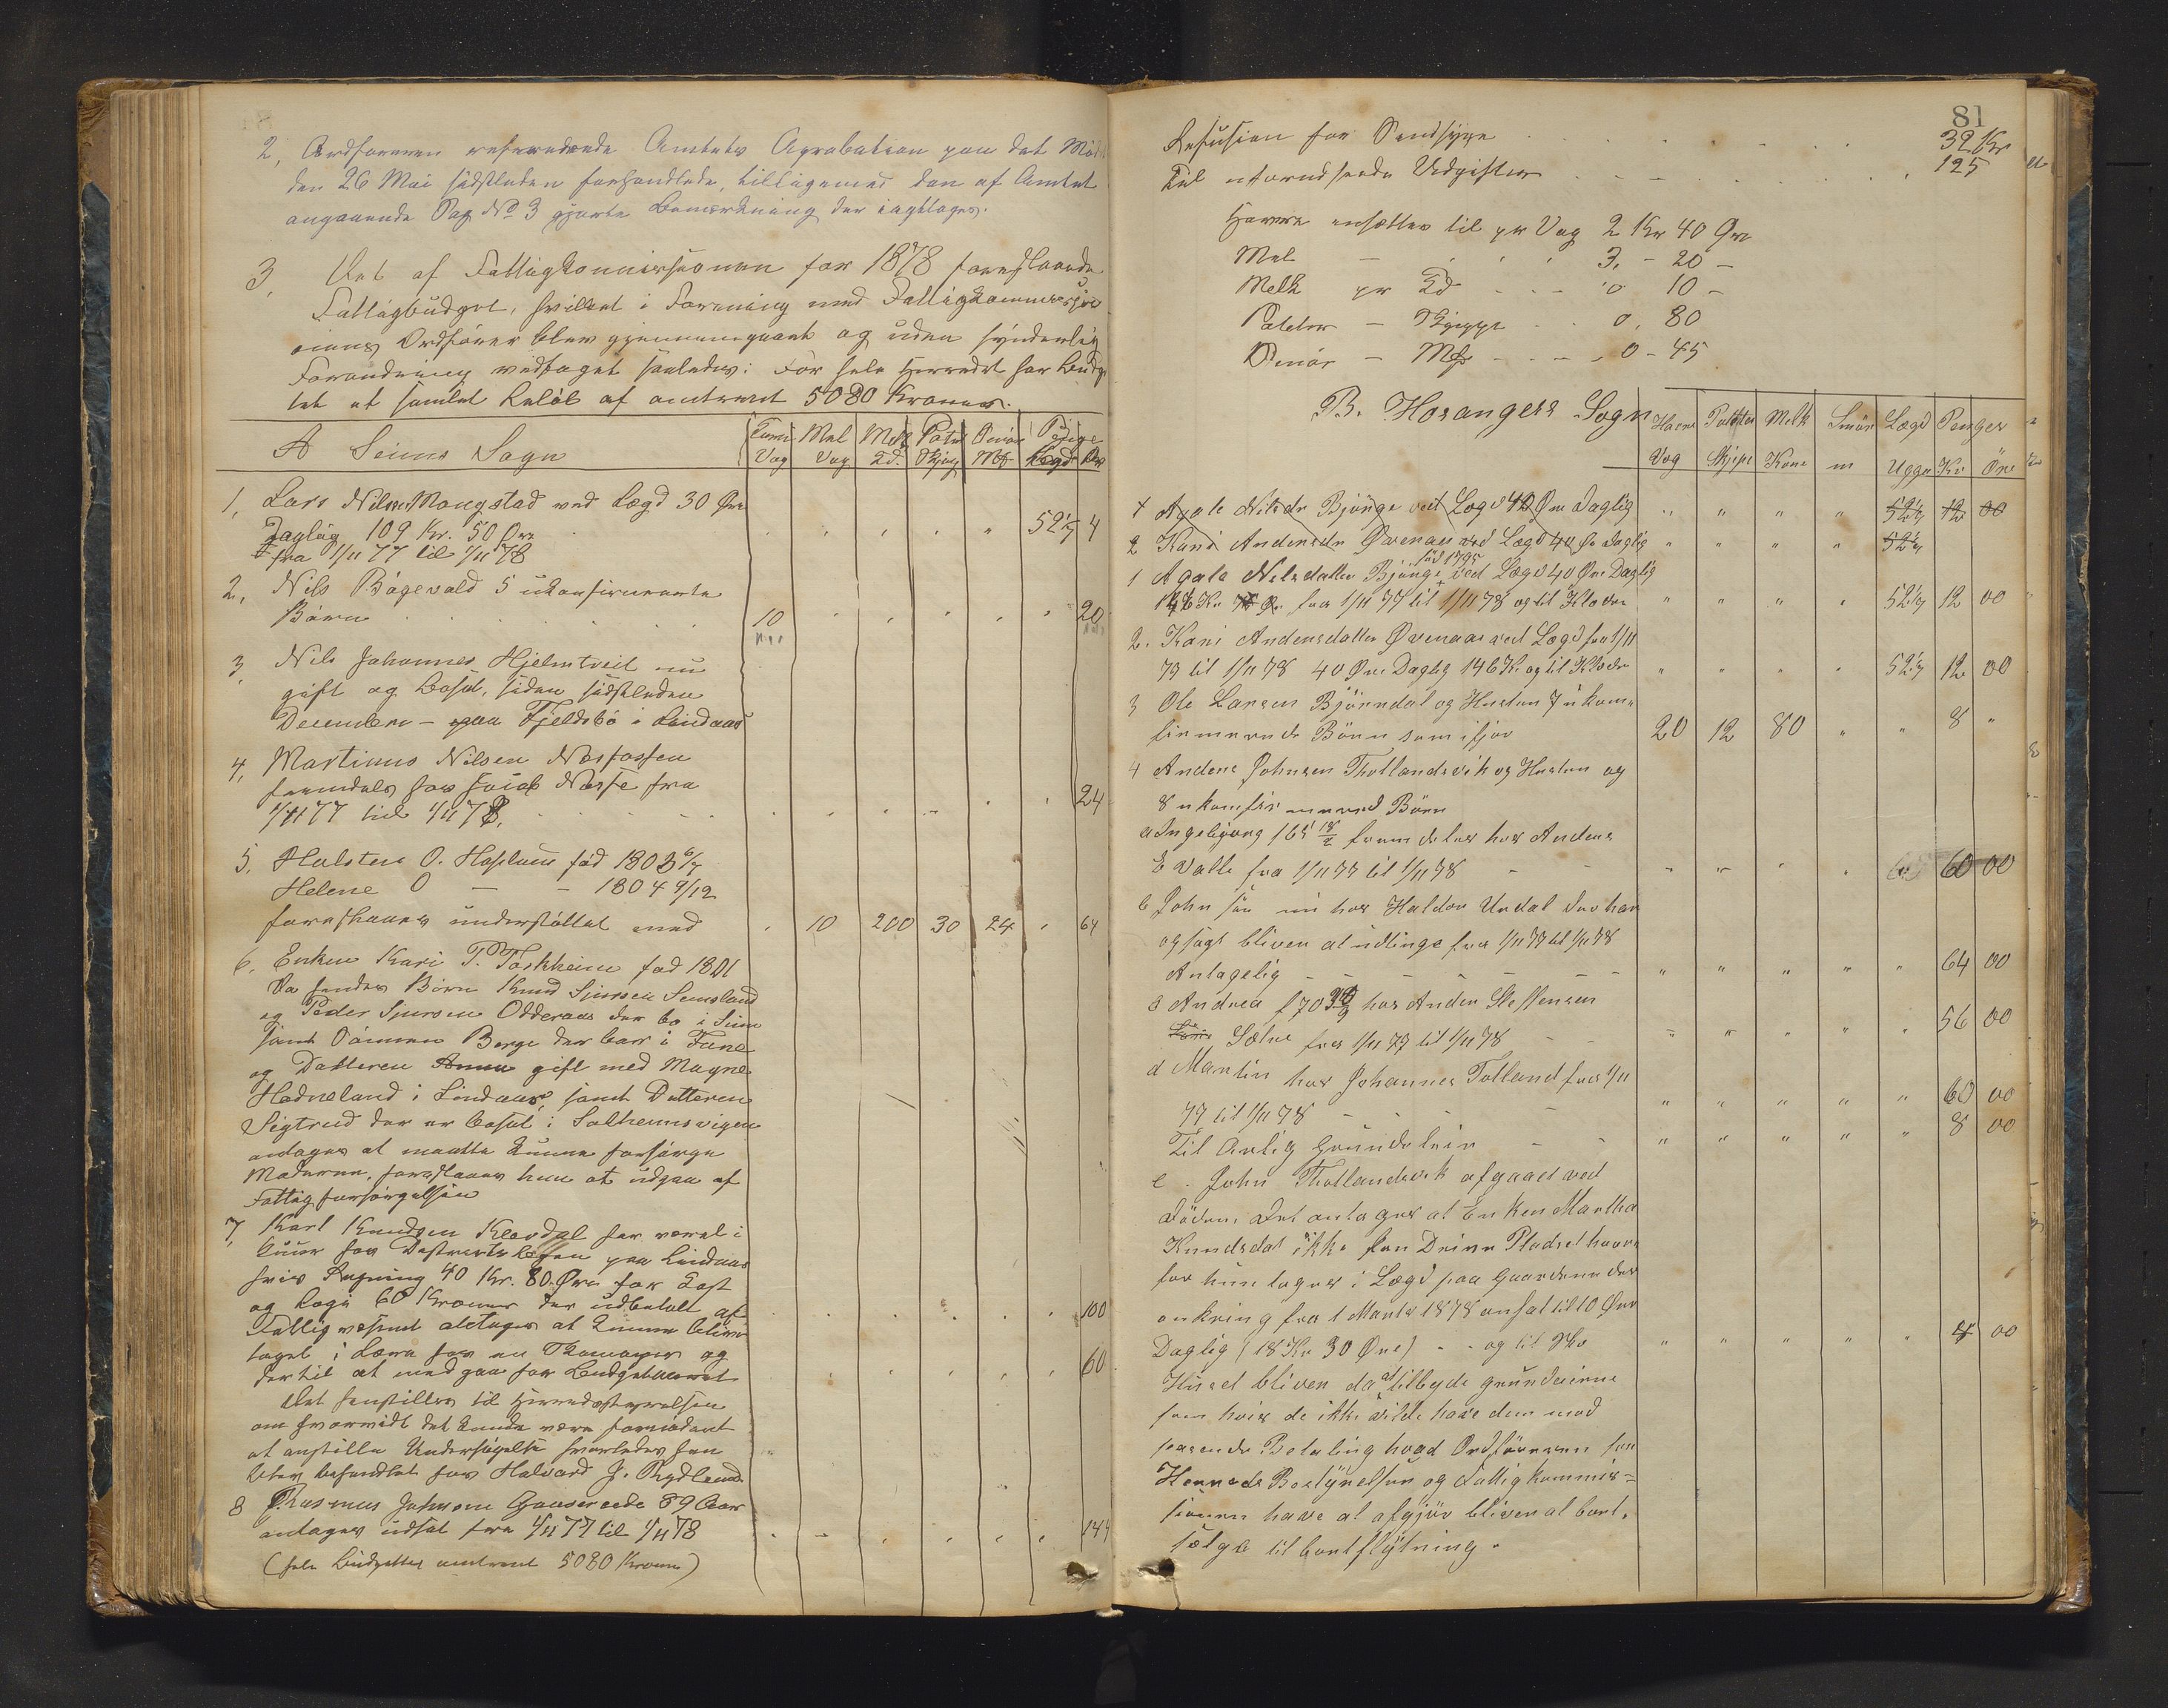 2, Ordføreren refererede Amtets Aprobation paa det Møde
den 26 Mai sidstleden forhandlede, tilligemed den af Amtet
angaaende Pag No 3 gjorte Bemærkning der iagttages.
3, Det af Fattigkommissionen for 1878 foreslaaede
Fattigbudget, hvilket i Forening med Fattigkommissjo-
nens Ordfører blev gjennemgaaet og uden synderlig
Forandring vedtaget saaledes: For hele Herredet har Budge
tet et samlet Beløb af omtrent 5080 Kroner.
A Seims Sogn
Vog Mel Vog Melk Kd. Potet Skjep Smør Mk Penge Lægd Kr
1, Lars Nilsen Mongstad ved Lægd 30 Øre
Daglig 109 Kr. 50 Øre 52 1/7 4
fra 1/11 77 til 1/11 78
2, Nils Bøgevald 5 ukonfirmerte
Børn 10 20
3, Nils Johannes Hjelmtveit nu
gift og bosat, siden sidstleden
December - paa Fjeldsbø i Lindaas
4, Martinus Nilsen Næsfossen
fremdeles hos Næsse fra
1/11 77 til 1/11 78. 24
5, Halsten O. Hoplum fød 1803 6/7
Helene O - - 1804 9/12
foreslaaes understøttet med 10 200 30 24 64
6, Enken Kari P. Toskheim fød 1801
Da hendes Børn Knud Sjursen Semsland
og Peder Sjursen Odderaas der bo i Seim
samt Sønnen Børge der boer i Fane
og Datteren Anna gift med Magne
Hodneland i Lindaas, samt Datteren
Sigtrud der er bosat i Solheimsvigen
antages at maatte kunne forsørge
Moderen, foreslaaes hun at udgaa af
Fattigforsørgelsen
7, Karl Knudsen Kleivdal har været i
Kuur hos Distriktslægen paa Lindaas
hvis Regning 40 Kr. 80 Øre for Kost
og Logi 60 Kroner der udbetalt af 100
Fattigvæsenet antages at kunne blive
taget i Lære hos en Skomager og
dertil at medgaa for Budgetaaret 60
Det henstilles til Herredsstyrelsen
om hvorvidt det kunde være fornødent
at anstille Undersøgelse hvorledes han
blev behandlet hos Halvard J. Rydland
8 Rasmus Johnsen Gaasereede 89 Aar
antages udsat fra 1/11 77 til 1/11 78 144
(hele Budgettet omtrent 5080 Kroner)
81
Refusion for Sindsyge 32 Kr
Til uforudseede Udgifter 125
Havre ansættes til pr Vog 2 Kr 40 Øre
Mel - 3. - 20 -
Melk pr Kd - - - 0 10 -
Poteter - Skjeppe - - 0. 80
Smør - Mk - - - 0 - 45
B. Hosangers Sogn
Havre Poteter Melk Smør Lægd Penger
Vog Skjepe Kane m Uger Kr Øre
1 Agate Nilsdr Bjønge ved Lægd 40 Øre Daglig " " " " 52 1/7 12 00
2 Kani Andersdr Øvenaas ved Lægd 40 Ør Daglig " " " " 52 1/7
fød 1795
1 Agate Nilsdatter Bjønge ved Lægd 40 Øre Daglig
146 Kr fra 1/11 77 til 1/11 78 og til Klæder " " " " 52 1/7 12 00
2. Kani Andersdatter Øvenaas ved Lægd fra 1/11
77 til 1/11 78 40 Øre Daglig 146 Kr og til Klæder " " " " 52 1/7 12 00
3 Ole Larsen Bjørndal og Hustru 7 ukon-
firmerede Børn som ifjor 20 12 80 " " 8 "
4 Anders Johnsen Thollandsvik og Hustru og
8 ukonfirmered Børn
a Ingebjørg fremdeles hos Anders
E Valle fra 1/11 77 til 1/11 78 - - " " " " 60 00
b John før nu hos Haldor Urdal der har
og sagt bliver at udlinge fra 1/11 77 til 1/11 78
Antagelig - - - - - - " " " " " 64 00
c Andrea hos Anders Steffensen
Sætre fra 1/11 77 til 1/11 78 - - " " " " " 56 00
d Martin hos Johannes Tolland fra 1/11
77 til 1/11 78 - - - - " " " " " 60 00
Til Aarlig Grundeleie - - " " " " " 8 00
e. John Thollandsvik afgaaet ved
Døden. Det antages at Enken Martha
Knudsdat ikke kan Drive Pladset hvore
for hun tages i Lægd paa Gaardene der
omkring fra 1 Marts 1878 ansat til 10 Øre
Daglig (18 Kr 30 Øre) - - og til Sko " " " " " 4 00
Huset bliver da at tilbyde grundeierne
som hvis de ikke vilde have dem mod
passende Betaling hvad Ordføreren for
Herreds Bestyrelsen og Fattigkommis-
sionen have at afgjør bliver at bort-
sælge til bortflytning.